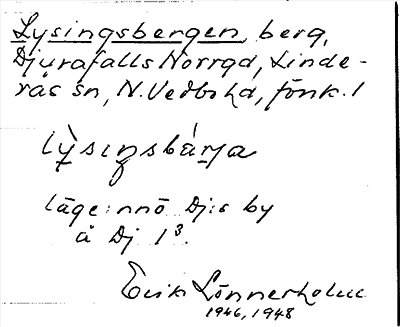 Lysingsbergen, berg,
Djurafalls Norrgd, Linde-
rås sn, N. Vedbo hd, Jönk. l
lỳsiŋsbárja
Läge: nnö Dj:s by
å Dj 1³.
Erik Lönnerholm
1946, 1948